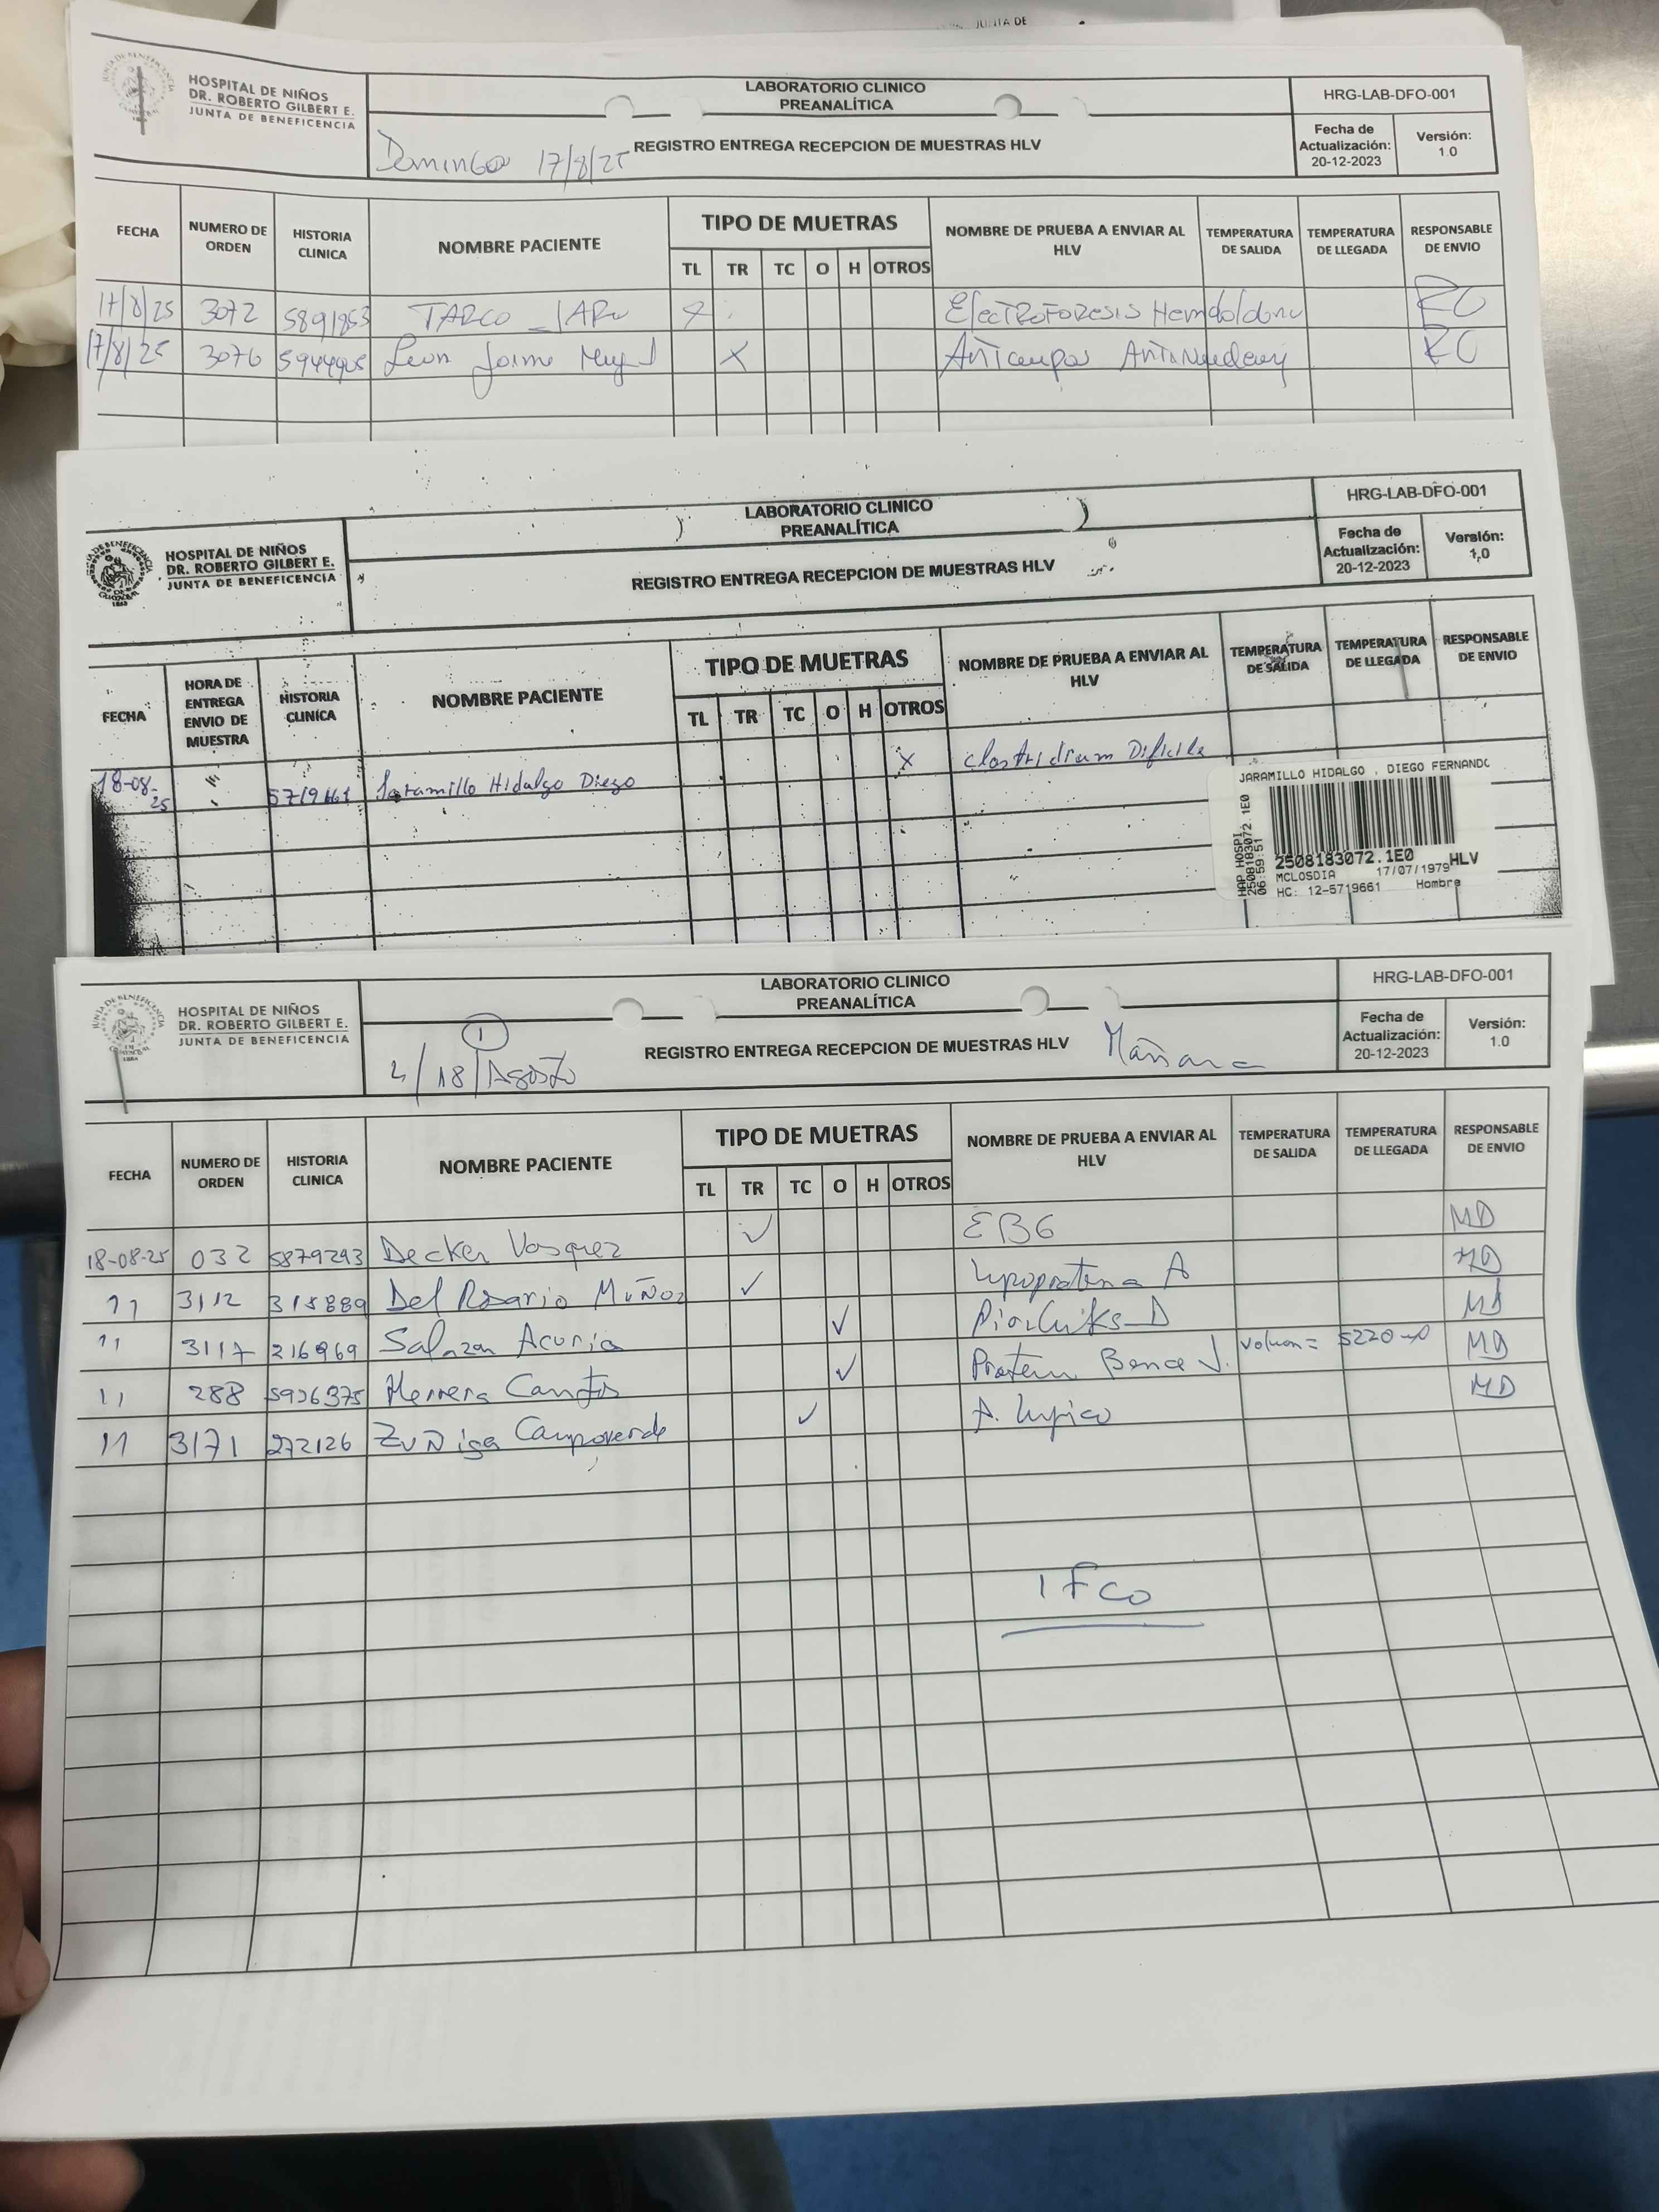 JUNTA DE
HOSPITAL DE NIÑOS
DR. ROBERTO GILBERT E.
JUNTA DE BENEFICENCIA
LABORATORIO CLINICO
PREANALÍTICA
HRG-LAB-DFO-001
Domingo 17/8/25
REGISTRO ENTREGA RECEPCION DE MUESTRAS HLV
Fecha de Actualización: 20-12-2023
Versión: 1.0
FECHA NUMERO DE ORDEN HISTORIA CLINICA NOMBRE PACIENTE TIPO DE MUETRAS NOMBRE DE PRUEBA A ENVIAR AL HLV TEMPERATURA DE SALIDA TEMPERATURA DE LLEGADA RESPONSABLE DE ENVIO
TL TR TC O H OTROS
17/8/25 3072 5891853 TARCO X RO
17/8/25 3076 Leon Jaime X RO
HOSPITAL DE NIÑOS
DR. ROBERTO GILBERT E.
JUNTA DE BENEFICENCIA
LABORATORIO CLINICO
PREANALÍTICA
HRG-LAB-DFO-001
REGISTRO ENTREGA RECEPCION DE MUESTRAS HLV
Fecha de Actualización: 20-12-2023
Versión: 1.0
FECHA HORA DE ENTREGA ENVIO DE MUESTRA HISTORIA CLINICA NOMBRE PACIENTE TIPO DE MUETRAS NOMBRE DE PRUEBA A ENVIAR AL HLV TEMPERATURA DE SALIDA TEMPERATURA DE LLEGADA RESPONSABLE DE ENVIO
TL TR TC O H OTROS
18-08-25 5719661 Jaramillo Hidalgo Diego X Clostridium Dificile
JARAMILLO HIDALGO , DIEGO FERNANDO
HAP HOSPI
2508183072.1E0
06:59:51
2508183072.1E0 HLV
MCLOSDIA 17/07/1979
HC: 12-5719661 Hombre
HOSPITAL DE NIÑOS
DR. ROBERTO GILBERT E.
JUNTA DE BENEFICENCIA
LABORATORIO CLINICO
PREANALÍTICA
HRG-LAB-DFO-001
1
18/Agosto
REGISTRO ENTREGA RECEPCION DE MUESTRAS HLV
Mañana
Fecha de Actualización: 20-12-2023
Versión: 1.0
FECHA NUMERO DE ORDEN HISTORIA CLINICA NOMBRE PACIENTE TIPO DE MUETRAS NOMBRE DE PRUEBA A ENVIAR AL HLV TEMPERATURA DE SALIDA TEMPERATURA DE LLEGADA RESPONSABLE DE ENVIO
TL TR TC O H OTROS
18-08-25 032 5879293 Decker Vasquez ✓ MD
11 3112 315889 Del Rosario Muñoz ✓ A MD
11 3117 216969 Salazar ✓ MD
11 288 5926375 Herrera ✓ Bence J. volumen = MD
11 3171 272126 Zuñiga Campoverde ✓ A. Lupico MD
1 Fco